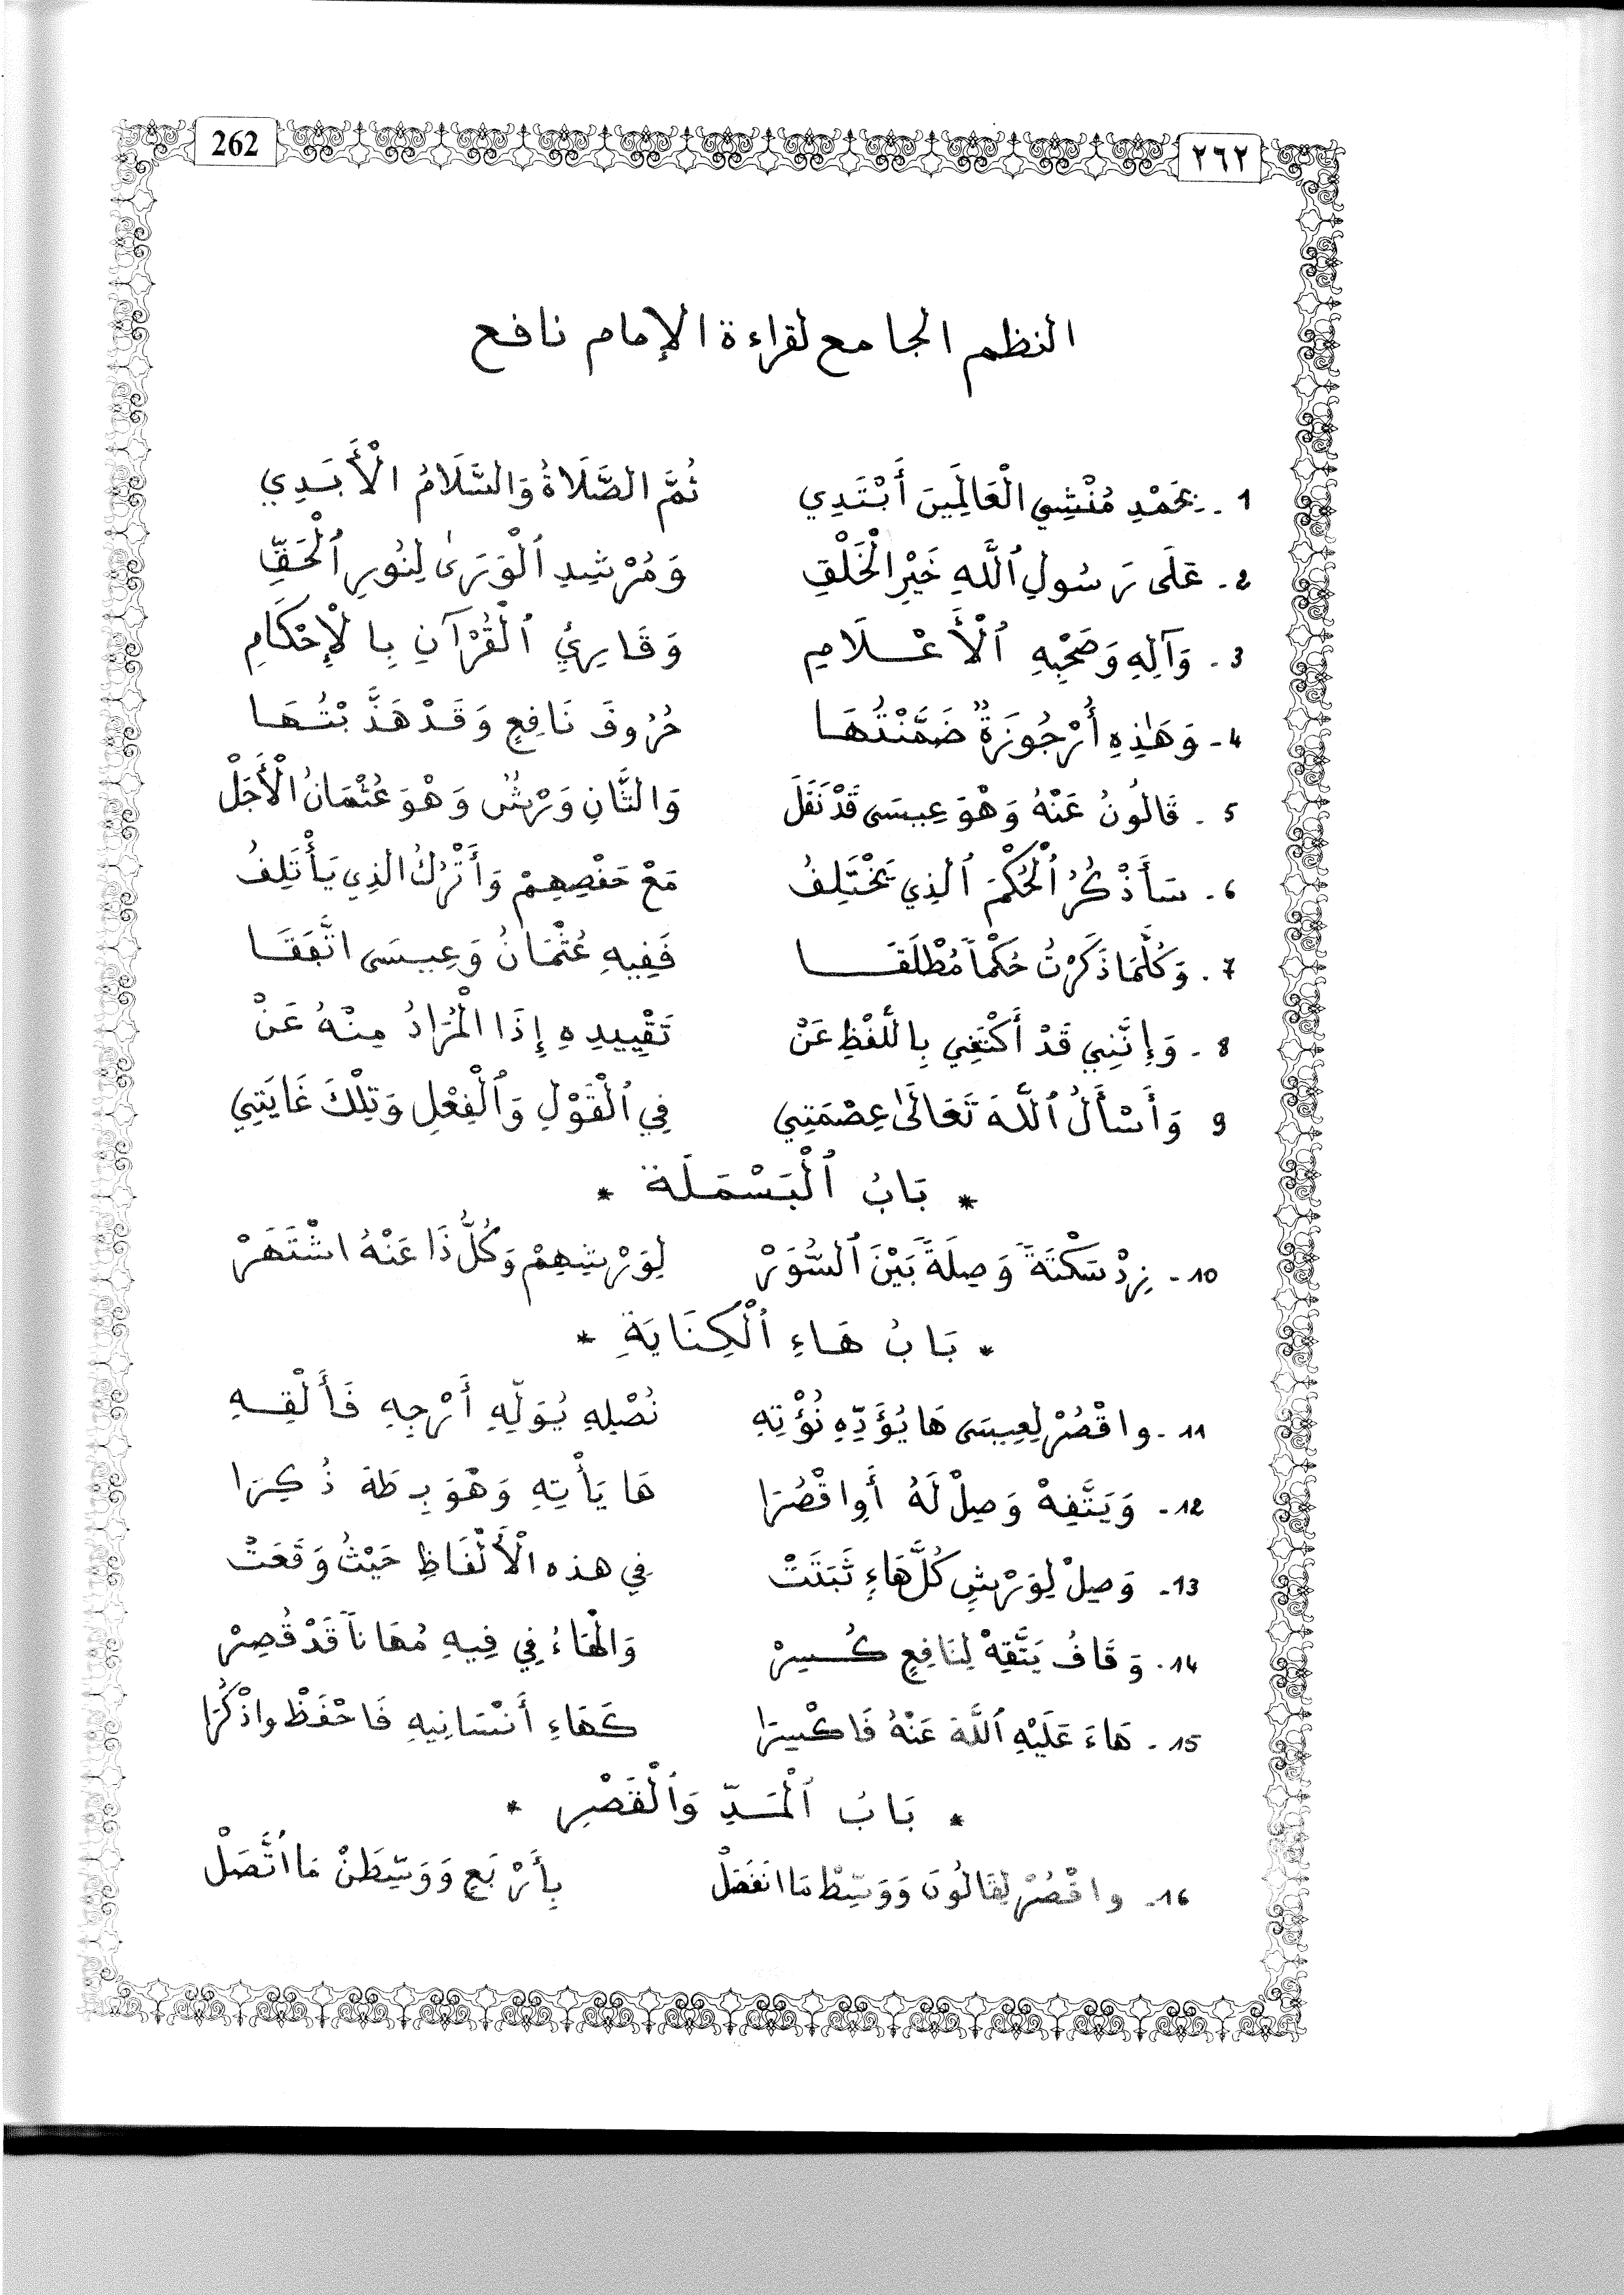 262
٢٦٢
النظم الجامع لقراءة الإمام نافع
1 - بِحَمْدِ مُنْشِي الْعَالَمِينَ أَبْتَدِي ثُمَّ الصَّلَاةُ وَالسَّلَامُ الْأَبَدِي
2 - عَلَى رَسُولِ ٱللَّهِ خَيْرِ الْخَلْقِ وَمُرْشِدِ ٱلْوَرَىٰ لِنُورِ ٱلْحَقِّ
3 - وَآلِهِ وَصَحْبِهِ ٱلْأَعْلَامِ وَقَارِئِ ٱلْقُرْآنِ بِالْإِحْكَامِ
4 - وَهَٰذِهِ أُرْجُوزَةٌ ضَمَّنْتُهَا حُرُوفَ نَافِعٍ وَقَدْ هَذَّبْتُهَا
5 - قَالُونُ عَنْهُ وَهْوَ عِيسَى قَدْ نَقَلْ وَالثَّانِ وَرْشٌ وَهْوَ عُثْمَانُ الْأَجَلْ
6 - سَأَذْكُرُ ٱلْحُكْمَ ٱلَّذِي يَخْتَلِفُ مَعْ حَفْصِهِمْ وَأَتْرُكُ الَّذِي يَأْتَلِفُ
7 - وَكُلَّمَا ذَكَرْتُ حُكْماً مُطْلَقَا فَفِيهِ عُثْمَانُ وَعِيسَى اتَّفَقَا
8 - وَإِنَّنِي قَدْ أَكْتَفِي بِاللَّفْظِ عَنْ تَقْيِيدِهِ إِذَا الْمُرَادُ مِنْهُ عَنْ
9 وَأَسْأَلُ ٱللَّهَ تَعَالَىٰ عِصْمَتِي فِي ٱلْقَوْلِ وَٱلْفِعْلِ وَتِلْكَ غَايَتِي
* بَابُ ٱلْبَسْمَلَة *
10 - زِدْ سَكْتَةً وَصِلَةً بَيْنَ ٱلسُّوَرْ لِوَرْشِهِمْ وَكُلُّ ذَا عَنْهُ اشْتَهَرْ
* بَابُ هَاءِ ٱلْكِنَايَةِ *
11 - واقْصُرْ لِعِيسَى هَا يُؤَدِّهِ نُؤْتِهِ نُصْلِهِ يُوَلِّهِ أَرْجِهِ فَأَلْقِهِ
12 - وَيَتَّقِهْ وَصِلْ لَهُ أَوِ اقْصُرَا هَا يَأْتِهِ وَهْوَ بِطَهَ ذُكِرَا
13 - وَصِلْ لِوَرْشٍ كُلَّ هَاءٍ ثَبَتَتْ فِي هذه الْأَلْفَاظِ حَيْثُ وَقَعَتْ
14 - وَقَافُ يَتَّقِهْ لِنَافِعٍ كُسِرْ وَالْهَاءُ فِي فِيهِ مُهَاناً قَدْ قُصِرْ
15 - هَاءَ عَلَيْهِ ٱللَّهَ عَنْهُ فَاكْسِرَا كَهَاءِ أَنْسَانِيهِ فَاحْفَظْ واذْكُرَا
* بَابُ ٱلْمَدِّ وَٱلْقَصْرِ *
16 - واقْصُرْ لِقَالُونَ وَوَسِّطْ مَا انْفَصَلْ بِأَرْبَعٍ وَوَسِّطَنْ مَا ٱتَّصَلْ